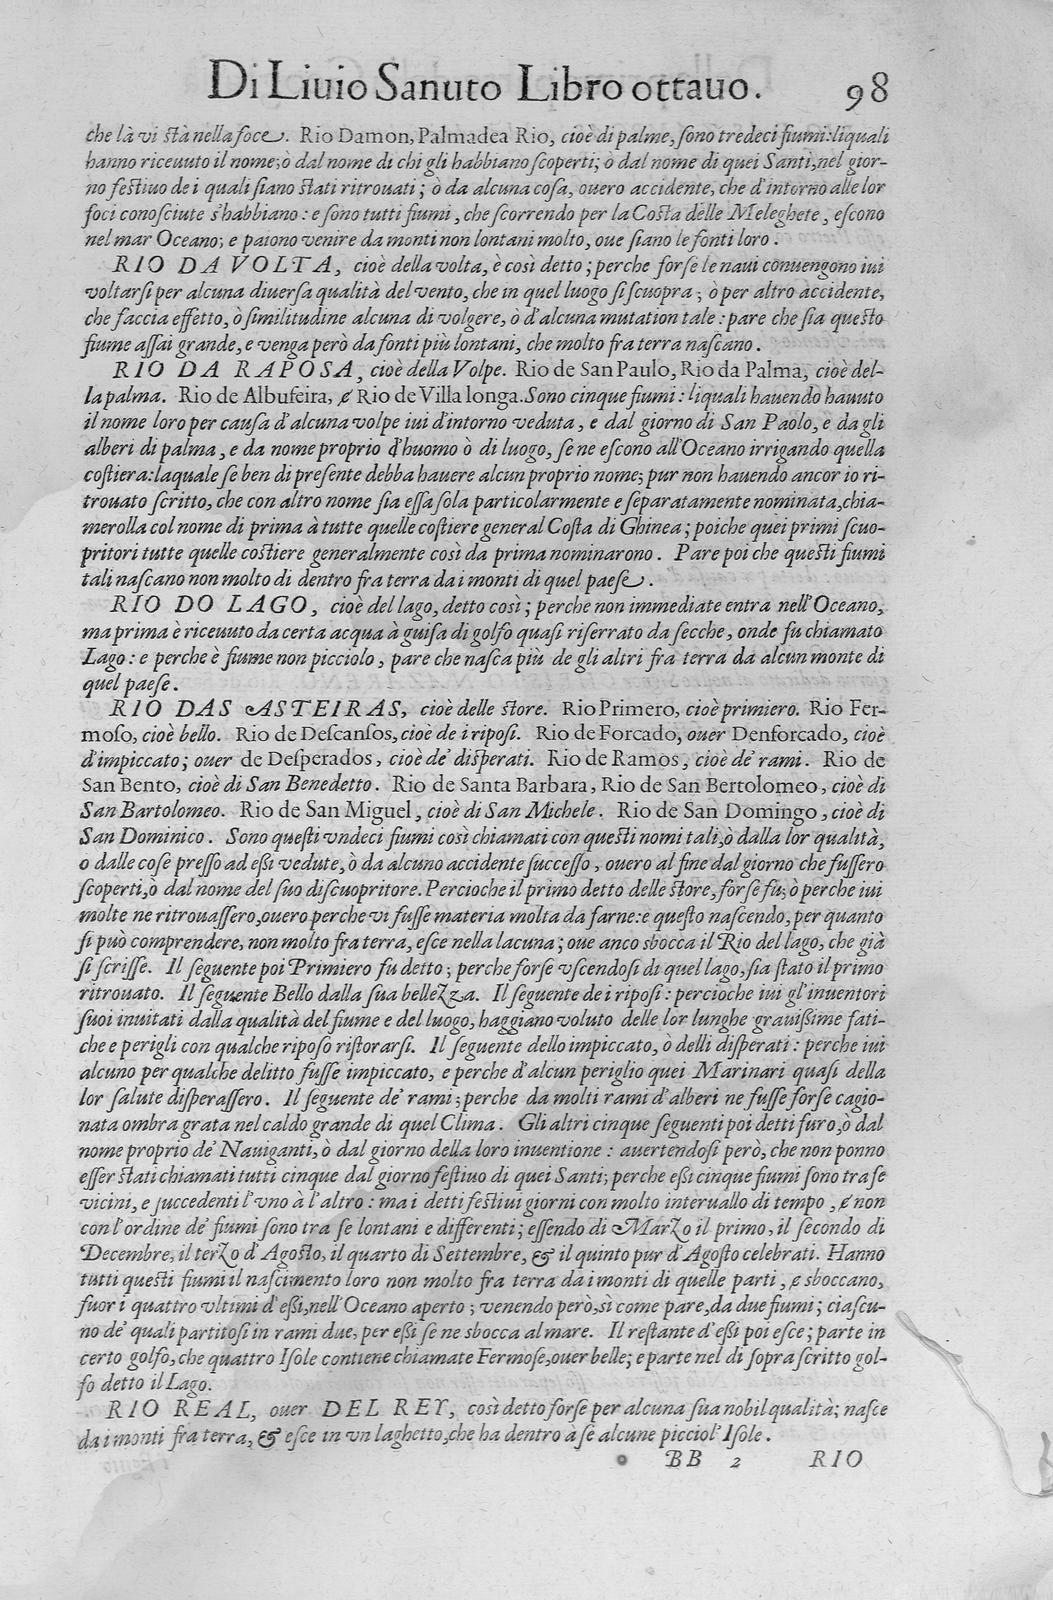 Di Liuio Sanuto Libro ottauo. 98
che là vi stà nella foce. Rio Damon, Palmadea Rio, cioè di palme, sono tredeci fiumi: liquali
hanno riceuuto il nome; ò dal nome di chi gli habbiano scoperti; ò dal nome di quei Santi, nel gior-
no festiuo de i quali siano stati ritrouati; ò da alcuna cosa, ouero accidente, che d'intorno alle lor
foci conosciute s'habbiano: e sono tutti fiumi, che scorrendo per la Costa delle Meleghete, escono
nel mar Oceano; e paiono venire da monti non lontani molto, oue siano le fonti loro.
RIO DA VOLTA, cioè della volta, è così detto; perche forse le naui conuengono iui
voltarsi per alcuna diuersa qualità del vento, che in quel luogo si scuopra; ò per altro accidente,
che faccia effetto, ò similitudine alcuna di volgere, ò d'alcuna mutation tale: pare che sia questo
fiume assai grande, e venga però da fonti più lontani, che molto fra terra nascano.
RIO DA RAPOSA, cioè della Volpe. Rio de San Paulo, Rio da Palma, cioè del-
la palma. Rio de Albufeira, & Rio de Villa longa. Sono cinque fiumi: liquali hauendo hauuto
il nome loro per causa d'alcuna volpe iui d'intorno veduta, e dal giorno di San Paolo, e da gli
alberi di palma, e da nome proprio d'huomo ò di luogo, se ne escono all'Oceano irrigando quella
costiera: laquale se ben di presente debba hauere alcun proprio nome; pur non hauendo ancor io ri-
trouato scritto, che con altro nome sia essa sola particolarmente e separatamente nominata, chia-
merolla col nome di prima à tutte quelle costiere general Costa di Ghinea; poiche quei primi scuo-
pritori tutte quelle costiere generalmente così da prima nominarono. Pare poi che questi fiumi
tali nascano non molto di dentro fra terra da i monti di quel paese.
RIO DO LAGO, cioè del lago, detto così; perche non immediate entra nell'Oceano,
ma prima è riceuuto da certa acqua à guisa di golfo quasi riserrato da secche, onde fu chiamato
Lago: e perche è fiume non picciolo, pare che nasca più de gli altri fra terra da alcun monte di
quel paese.
RIO DAS ASTEIRAS, cioè delle store. Rio Primero, cioè primiero. Rio Fer-
moso, cioè bello. Rio de Descansos, cioè de i riposi. Rio de Forcado, ouer Denforcado, cioè
d'impiccato; ouer de Desperados, cioè de' disperati. Rio de Ramos, cioè de' rami. Rio de
San Bento, cioè di San Benedetto. Rio de Santa Barbara, Rio de San Bertolomeo, cioè di
San Bartolomeo. Rio de San Miguel, cioè di San Michele. Rio de San Domingo, cioè di
San Dominico. Sono questi vndeci fiumi così chiamati con questi nomi tali, ò dalla lor qualità,
o dalle cose presso ad essi vedute, ò da alcuno accidente successo, ouero al fine dal giorno che fussero
scoperti, ò dal nome del suo discuopritore. Percioche il primo detto delle store, forse fu; ò perche iui
molte ne ritrouassero, ouero perche vi fusse materia molta da farne: e questo nascendo, per quanto
si può comprendere, non molto fra terra, esce nella lacuna; oue anco sbocca il Rio del lago, che già
si scrisse. Il seguente poi Primiero fu detto; perche forse vscendosi di quel lago, sia stato il primo
ritrouato. Il seguente Bello dalla sua bellezza. Il seguente de i riposi: percioche iui gl'inuentori
suoi inuitati dalla qualità del fiume e del luogo, haggiano voluto delle lor lunghe grauissime fati-
che e perigli con qualche riposo ristorarsi. Il seguente dello impiccato, ò delli disperati: perche iui
alcuno per qualche delitto fusse impiccato, e perche d'alcun periglio quei Marinari quasi della
lor salute disperassero. Il seguente de' rami; perche da molti rami d'alberi ne fusse forse cagio-
nata ombra grata nel caldo grande di quel Clima. Gli altri cinque seguenti poi detti furo, ò dal
nome proprio de' Nauiganti, ò dal giorno della loro inuentione: auertendosi però, che non ponno
esser stati chiamati tutti cinque dal giorno festiuo di quei Santi; perche essi cinque fiumi sono tra se
vicini, e succedenti l'vno à l'altro: ma i detti festiui giorni con molto interuallo di tempo, & non
con l'ordine de' fiumi sono tra se lontani e differenti; essendo di Marzo il primo, il secondo di
Decembre, il terzo d'Agosto, il quarto di Settembre, & il quinto pur d'Agosto celebrati. Hanno
tutti questi fiumi il nascimento loro non molto fra terra da i monti di quelle parti, & sboccano,
fuor i quattro vltimi d'essi, nell'Oceano aperto; venendo però, sì come pare, da due fiumi; ciascu-
no de' quali partitosi in rami due, per essi se ne sbocca al mare. Il restante d'essi poi esce; parte in
certo golfo, che quattro Isole contiene chiamate Fermose, ouer belle; e parte nel di sopra scritto gol-
fo detto il Lago.
RIO REAL, ouer DEL REY, così detto forse per alcuna sua nobil qualità; nasce
da i monti fra terra, & esce in vn laghetto, che ha dentro à se alcune picciol' Isole.
BB 2 RIO